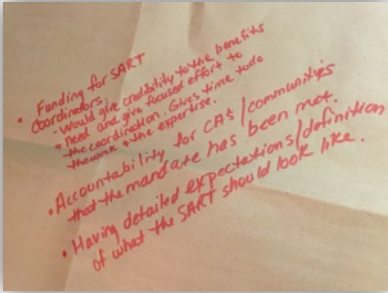 • Funding for SART
Coordinators.
- Would give credibility to the benefits
& need and give focused effort to
the coordination. Gives time to do
the work & the expertise.
• Accountability for CAs/communities
that the mandate has been met.
• Having detailed expectations/definition
of what the SART should look like.